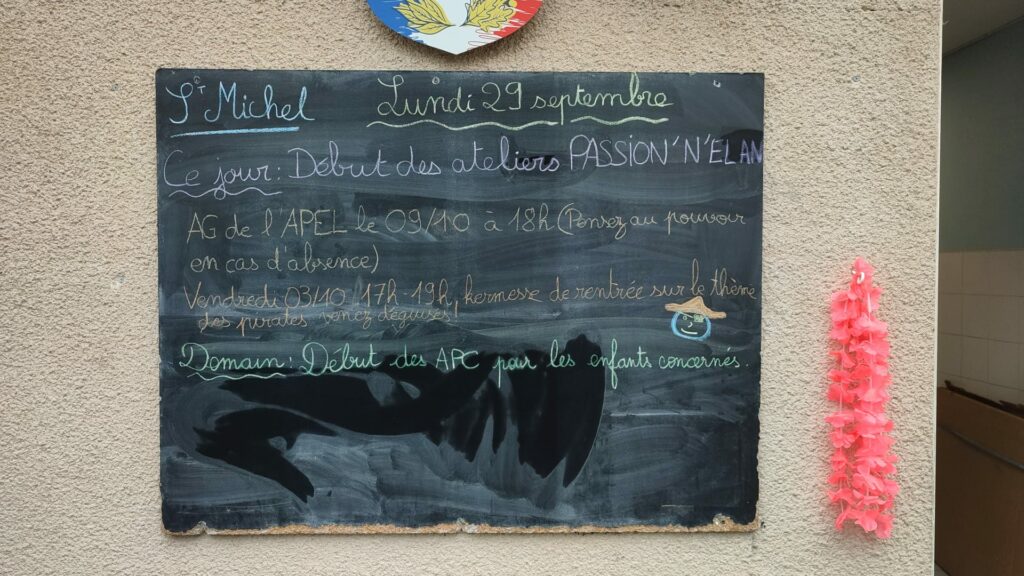 St Michel
Lundi 29 septembre
Ce jour : Début des ateliers PASSION'N'ELAN
AG de l'APEL le 09/10 à 18h (Pensez au pouvoir
en cas d'absence)
Vendredi 03/10 17h 19h, kermesse de rentrée sur le thème
des pirates venez déguisés !
Demain : Début des APC pour les enfants concernés.